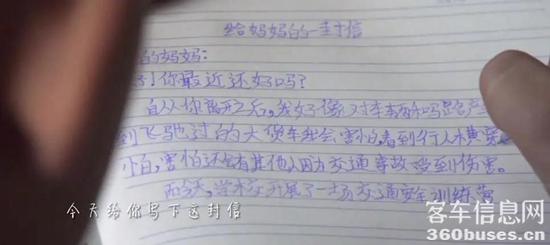 给妈妈的一封信
的妈妈:
你最近还好吗?
自从你离开之后,我好像对车辆和鸣笛产
到飞驰过的大货车我会害怕,看到行人横穿
怕,害怕还会有其他人因为交通事故受到伤害。
而今天,学校开展了一场交通安全训练营
今天给你写下这封信
客车信息网
360buses.cn